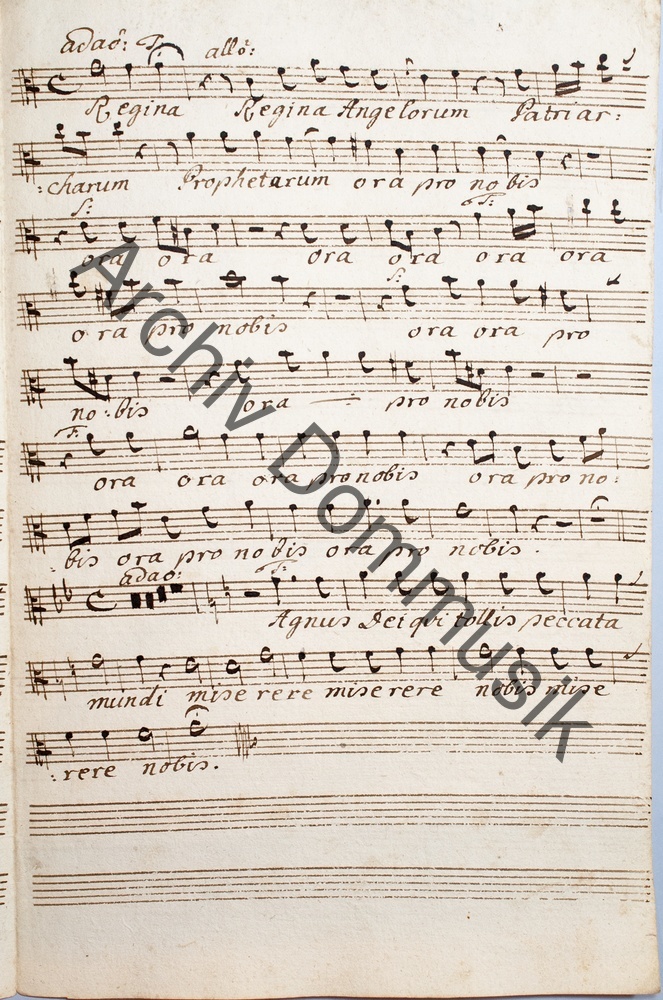 adaõ: T. allõ:
Regina Regina Angelorum Patriar:
:charum Prophetarum ora pro nobis
S: T:
ora ora ora ora ora ora
S:
ora pro nobis ora ora pro
no:bis ora pro nobis
T:
ora ora ora pro nobis ora pro no:
bis ora pro nobis ora pro nobis.
adaõ: T:
Agnus Dei qvi tollis peccata
mundi miserere miserere nobis mise
:rere nobis.
Archiv Dommusik